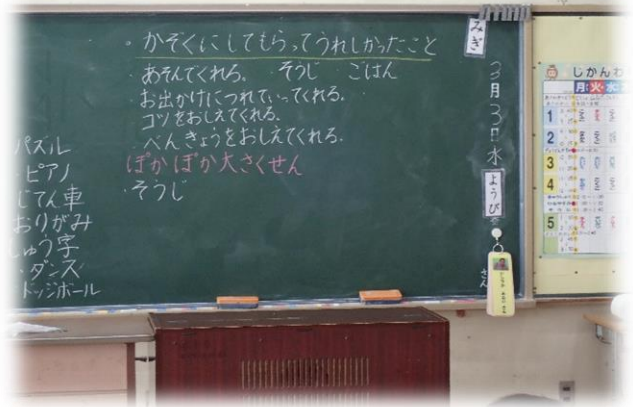 ・かぞくにしてもらってうれしかったこと
・あそんでくれる。 そうじ ごはん
お出かけにつれていってくれる。
コツをおしえてくれる。
・べんきょうをおしえてくれる。
ぽかぽか大さくせん
・そうじ
パズル
ピアノ
じてん車
おりがみ
しゅう字
・ダンス
ドッジボール
みぎ
3月3日水
ようび
さん
じかんわ
月 火 水
1
2
3
4
5